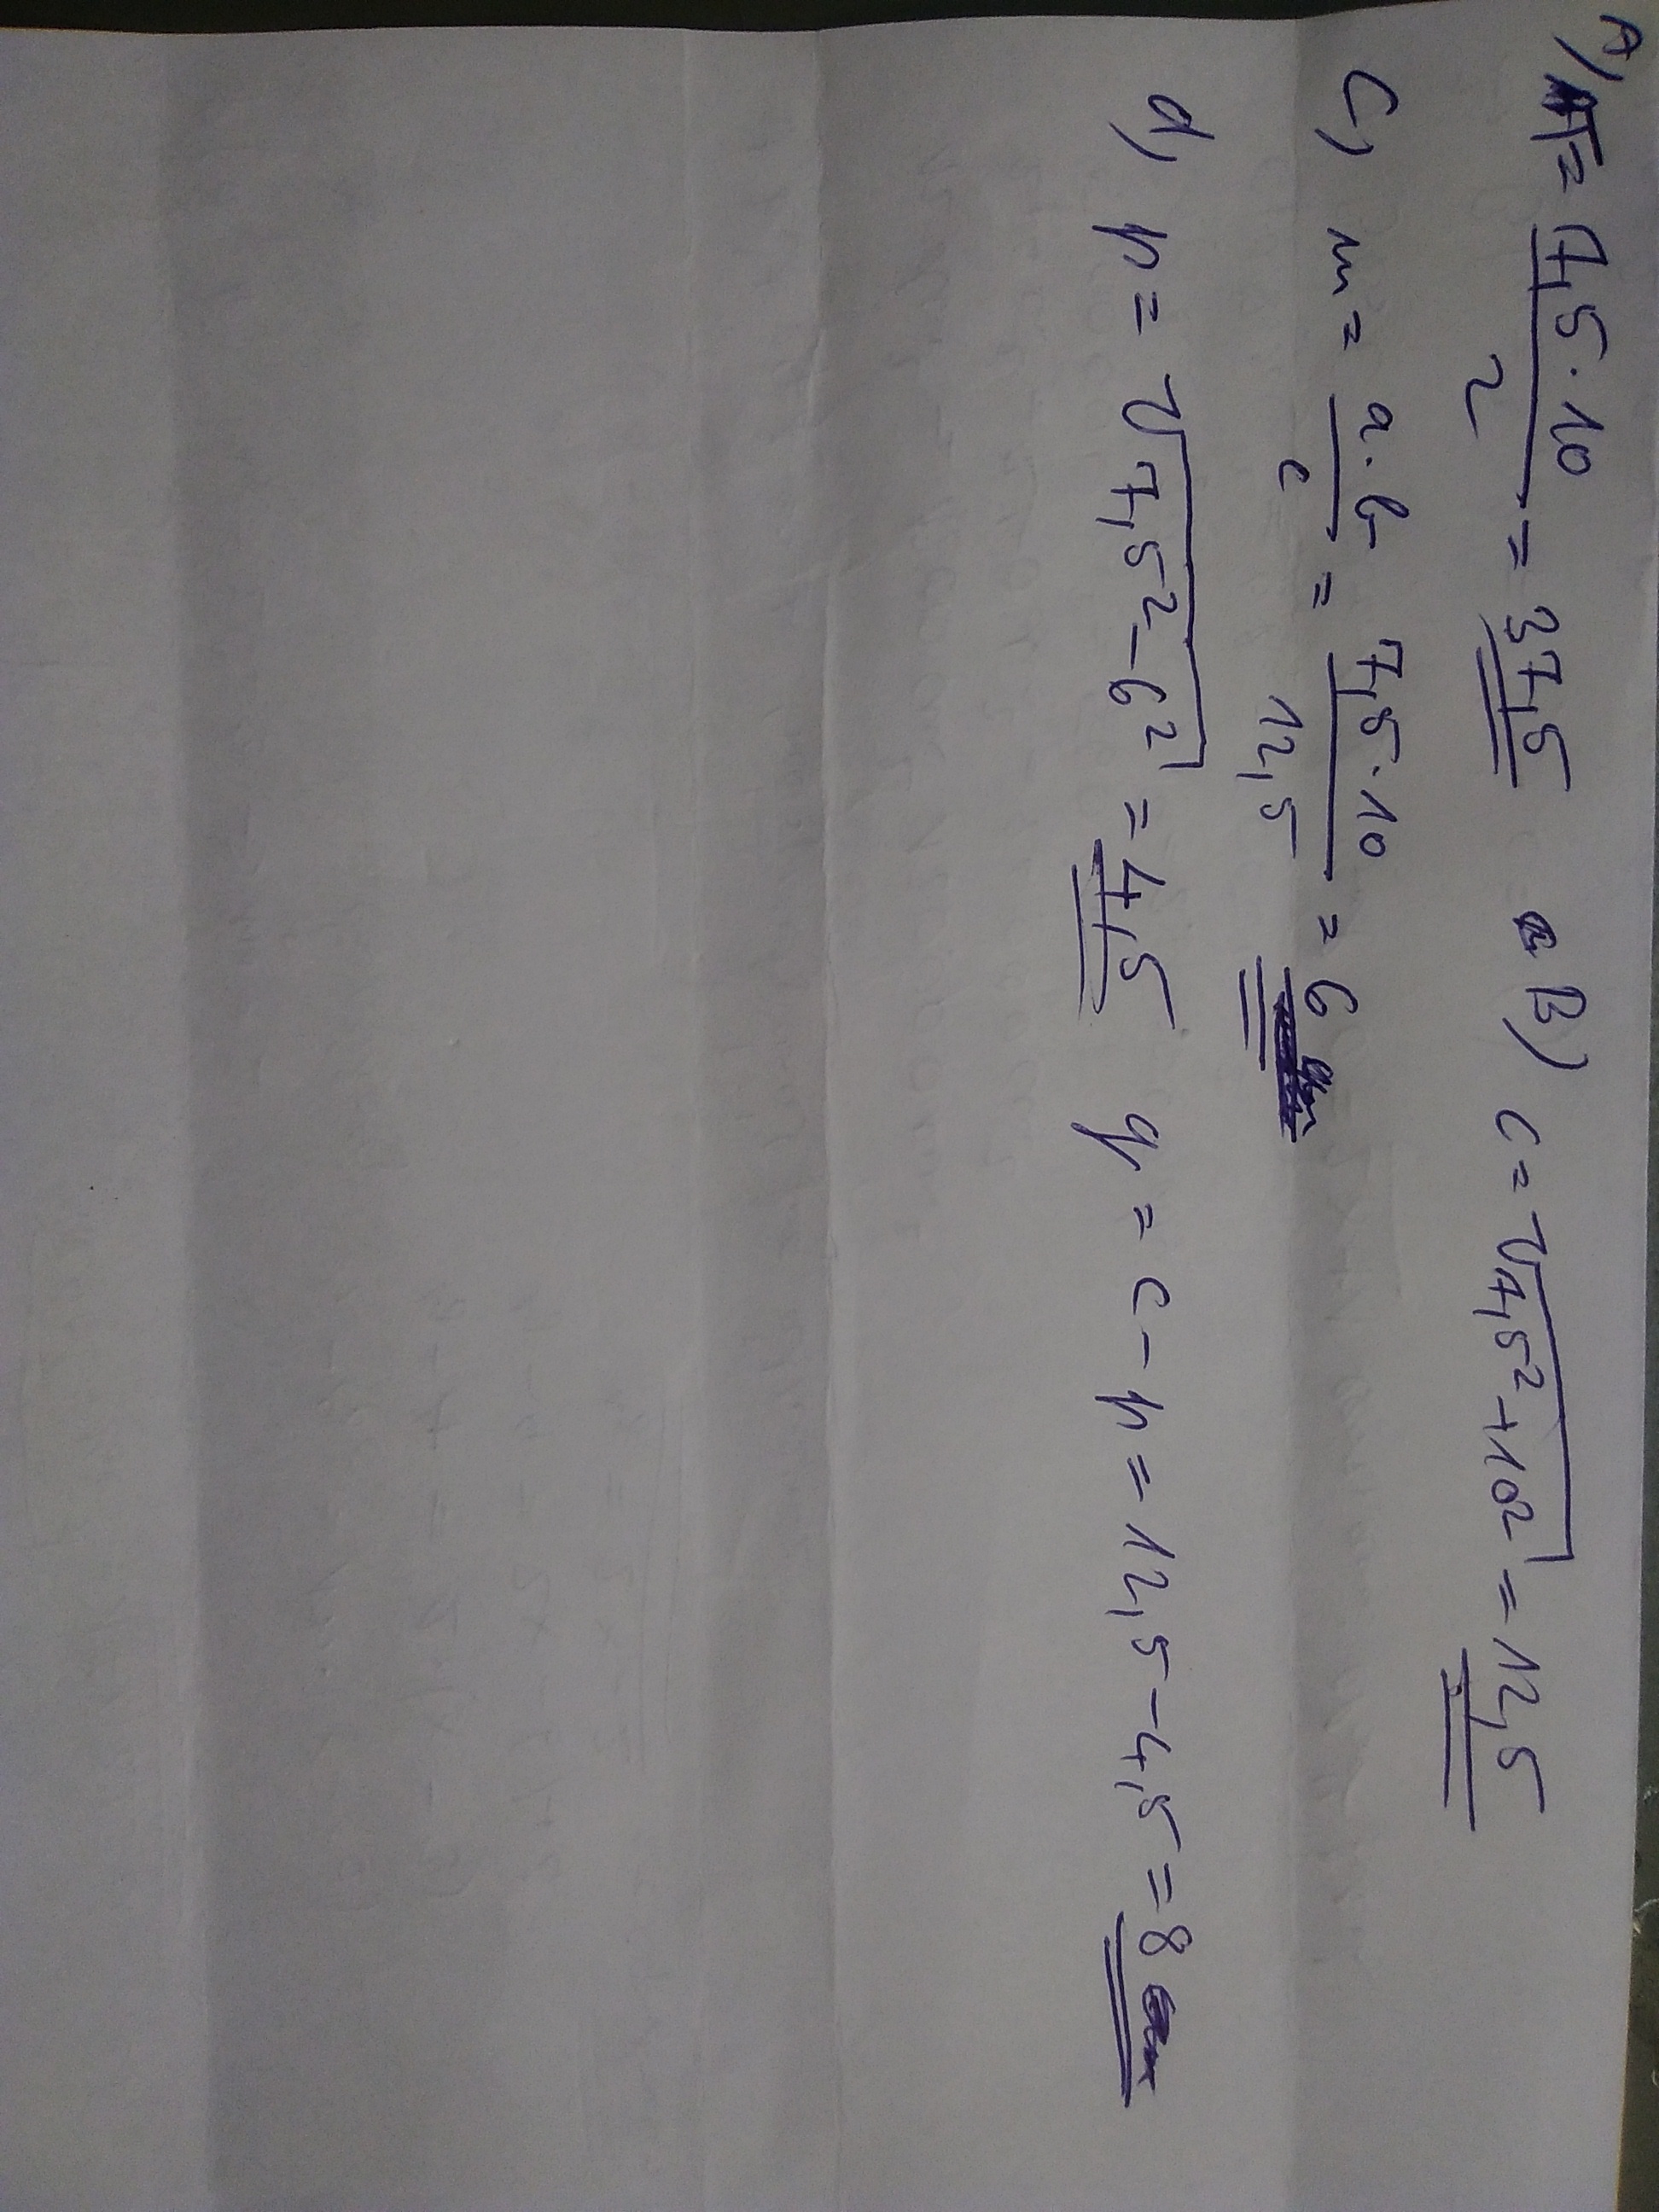 A) T = 7,5·10 / 2 = 37,5 B) c = √7,5²+10² = 12,5
C) m = a·b / c = 7,5·10 / 12,5 = 6
d) p = √7,5²-6² = 4,5 q = c - p = 12,5 - 4,5 = 8